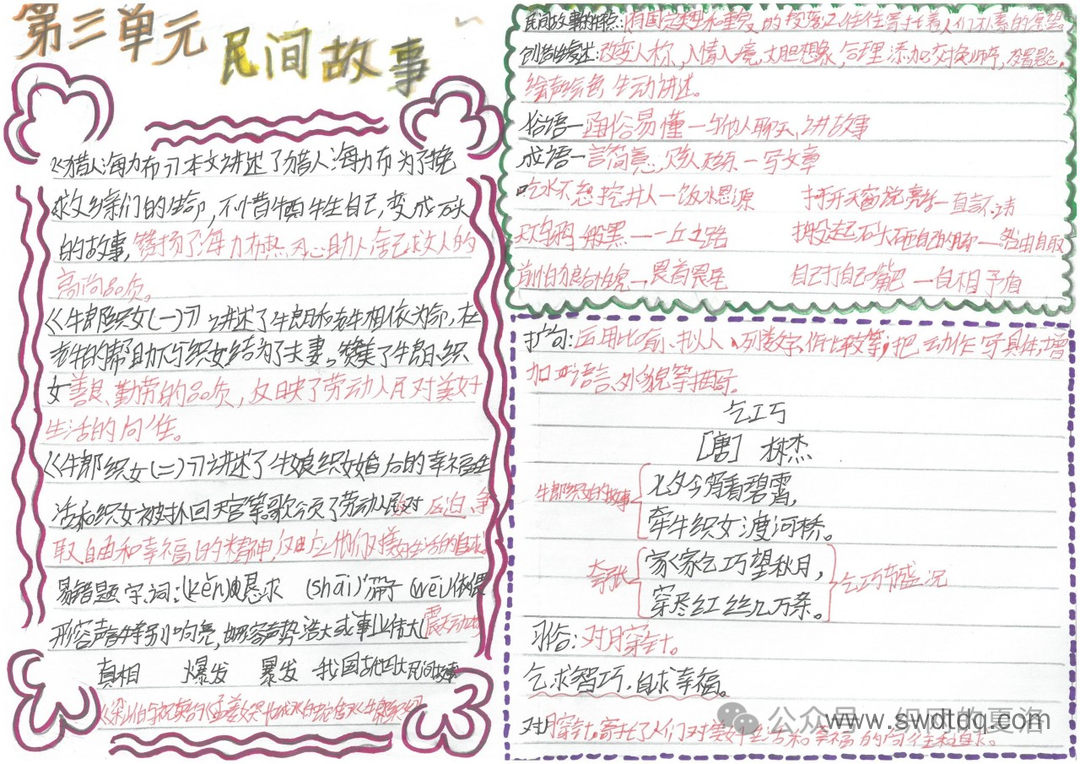 第三单元
民间故事
《猎人海力布》本文讲述了猎人海力布为了挽
救乡亲们的生命,不惜牺牲自己,变成石头
的故事,赞扬了海力布热心助人舍己救人的
高尚品质。
《牛郎织女(一)》讲述了牛郎和老牛相依为命,在
老牛的帮助下与织女结为了夫妻。赞美了牛郎织
女善良、勤劳的品质,反映了劳动人民对美好
生活的向往。
《牛郎织女(二)》讲述了牛郎织女婚后的幸福生
活和织女被抓回天宫等歌颂了劳动人民对 压迫、争
取自由和幸福的精神,反映他们对美好生活的追求。
易错题字词:(kěn)恳求 (shāi)筛子 (wēi)依偎
形容声音特别响亮,或形容声势浩大或事业伟大 震天动地
真相 爆发 暴发 我国古代四大民间故事
《梁山伯与祝英台》《孟姜女哭长城》《白蛇传》《牛郎织女》
民间故事的特点:有固定类型和重复的段落,往往寄托着人们朴素的愿望
创造性复述:改变人称,入情入境,大胆想象,合理添加,交换顺序,设置悬念,
绘声绘色 生动讲述。
俗语—通俗易懂—与他人聊天,讲故事
成语—言简意赅 —写文章
吃水不忘挖井人—饮水思源 打开天窗说亮话—直言不讳
天下乌鸦一般黑—一丘之貉 搬起石头砸自己的脚—咎由自取
前怕狼后怕虎—畏首畏尾 自己打自己嘴巴—自相矛盾
扩句:运用比喻、拟人、列数字、作比较等,把动作写具体,增
加语言、外貌等描写。
乞巧
[唐] 林杰
牛郎织女的故事
七夕今宵看碧霄,
牵牛织女渡河桥。
夸张
家家乞巧望秋月,
穿尽红丝几万条。
乞巧节盛况
习俗:对月穿针。
乞求智巧,追求幸福。
对月穿针,寄托了人们对美好生活和幸福的向往和追求。
公众号
www.swdtdq.com